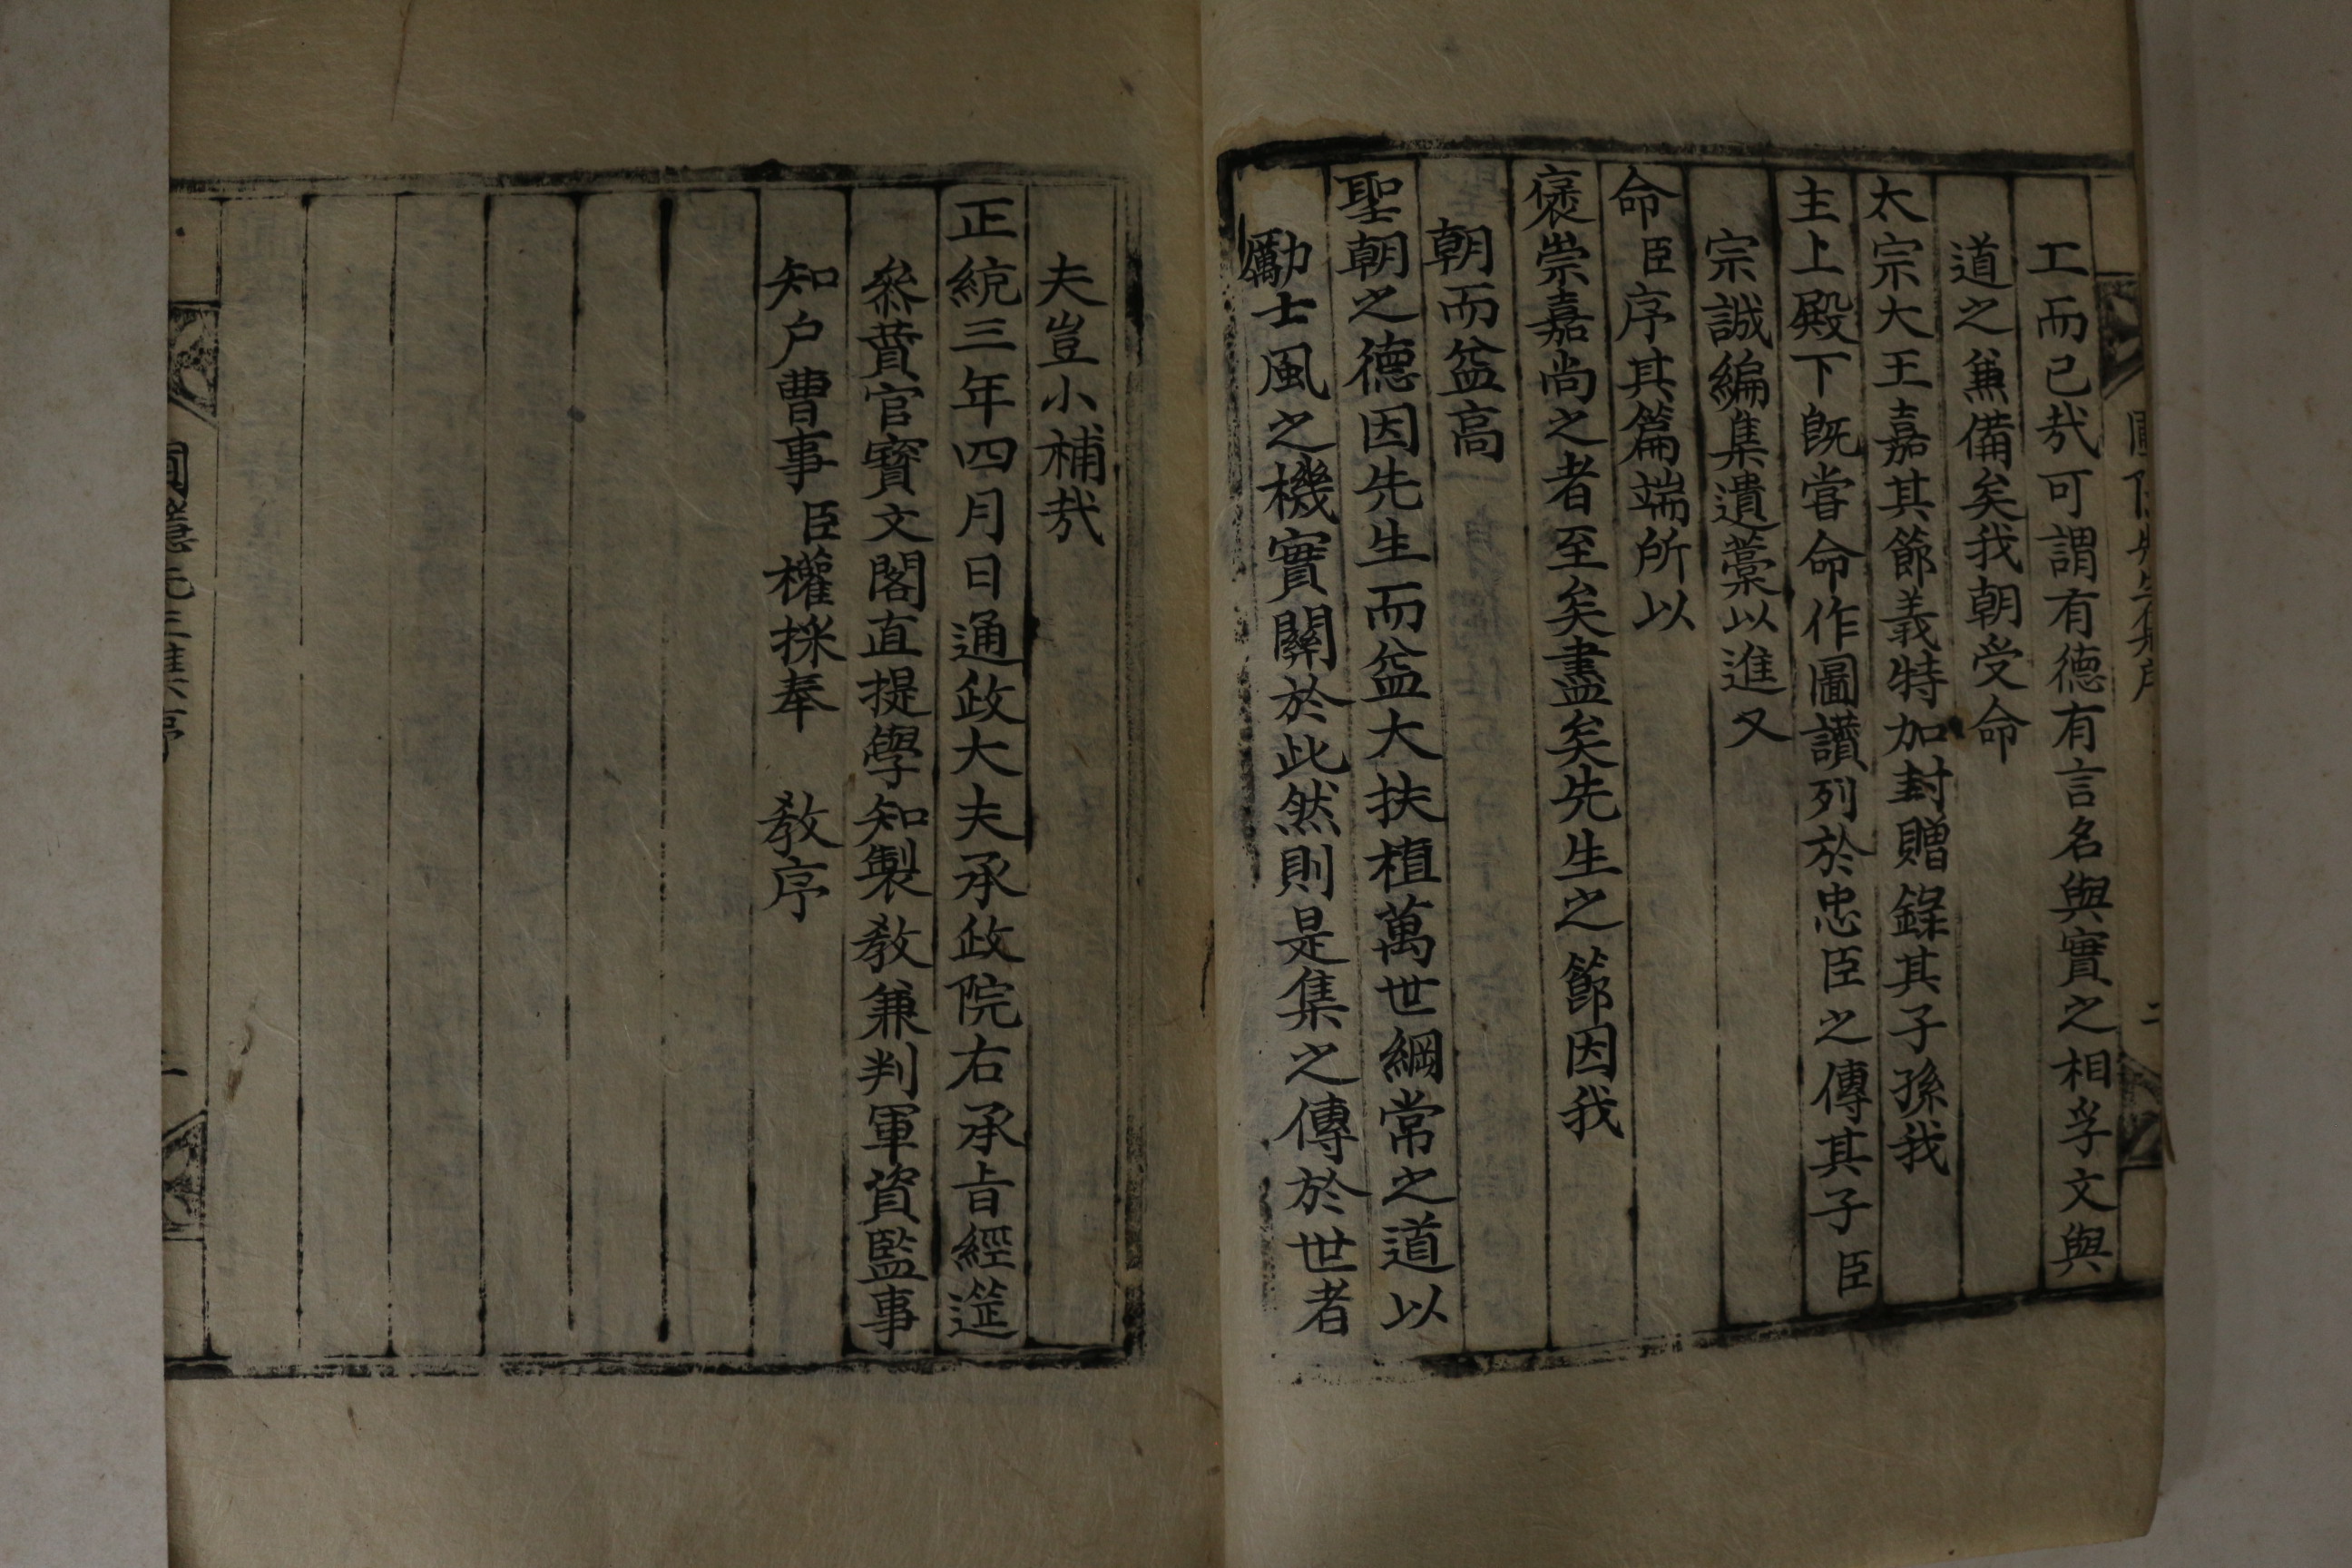 工而已㢤可謂有德有言名與實之相孚文與
道之兼備矣我朝受命
太宗大王嘉其節義特加封贈錄其子孫我
主上殿下旣甞命作圖讃列於忠臣之傳其子臣
宗誠編集遺藁以進又
命臣序其篇端所以
褒崇嘉尚之者至矣盡矣先生之節因我
朝而益高
聖朝之德因先生而益大扶植萬世綱常之道以
勵士風之機實關於此然則是集之傳於世者
夫豈小補㢤
正統三年四月日通政大夫承政院右承旨經筵
叅賛官寳文閣直提學知製敎兼判軍資監事
知户曹事臣權採奉 敎序
圃隱先生集序